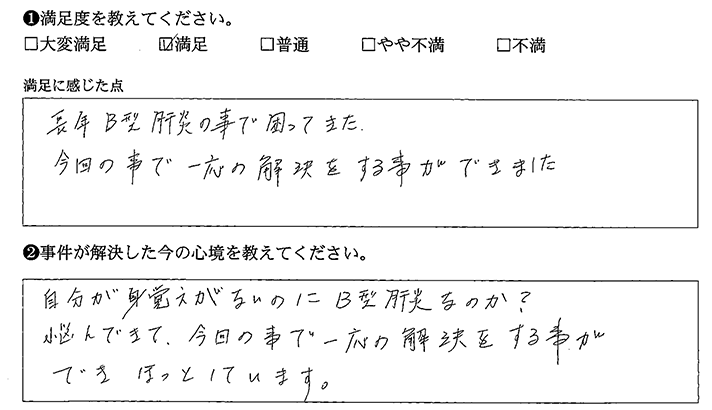 ❶満足度を教えてください。
□大変満足 ☑満足 □普通 □やや不満 □不満
満足に感じた点
長年B型肝炎の事で困ってきた.
今回の事で一応の解決をする事ができました
❷事件が解決した今の心境を教えてください。
自分が身覚えがないのにB型肝炎なのか?
悩んできて、今回の事で一応の解決をする事が
でき ほっとしています。